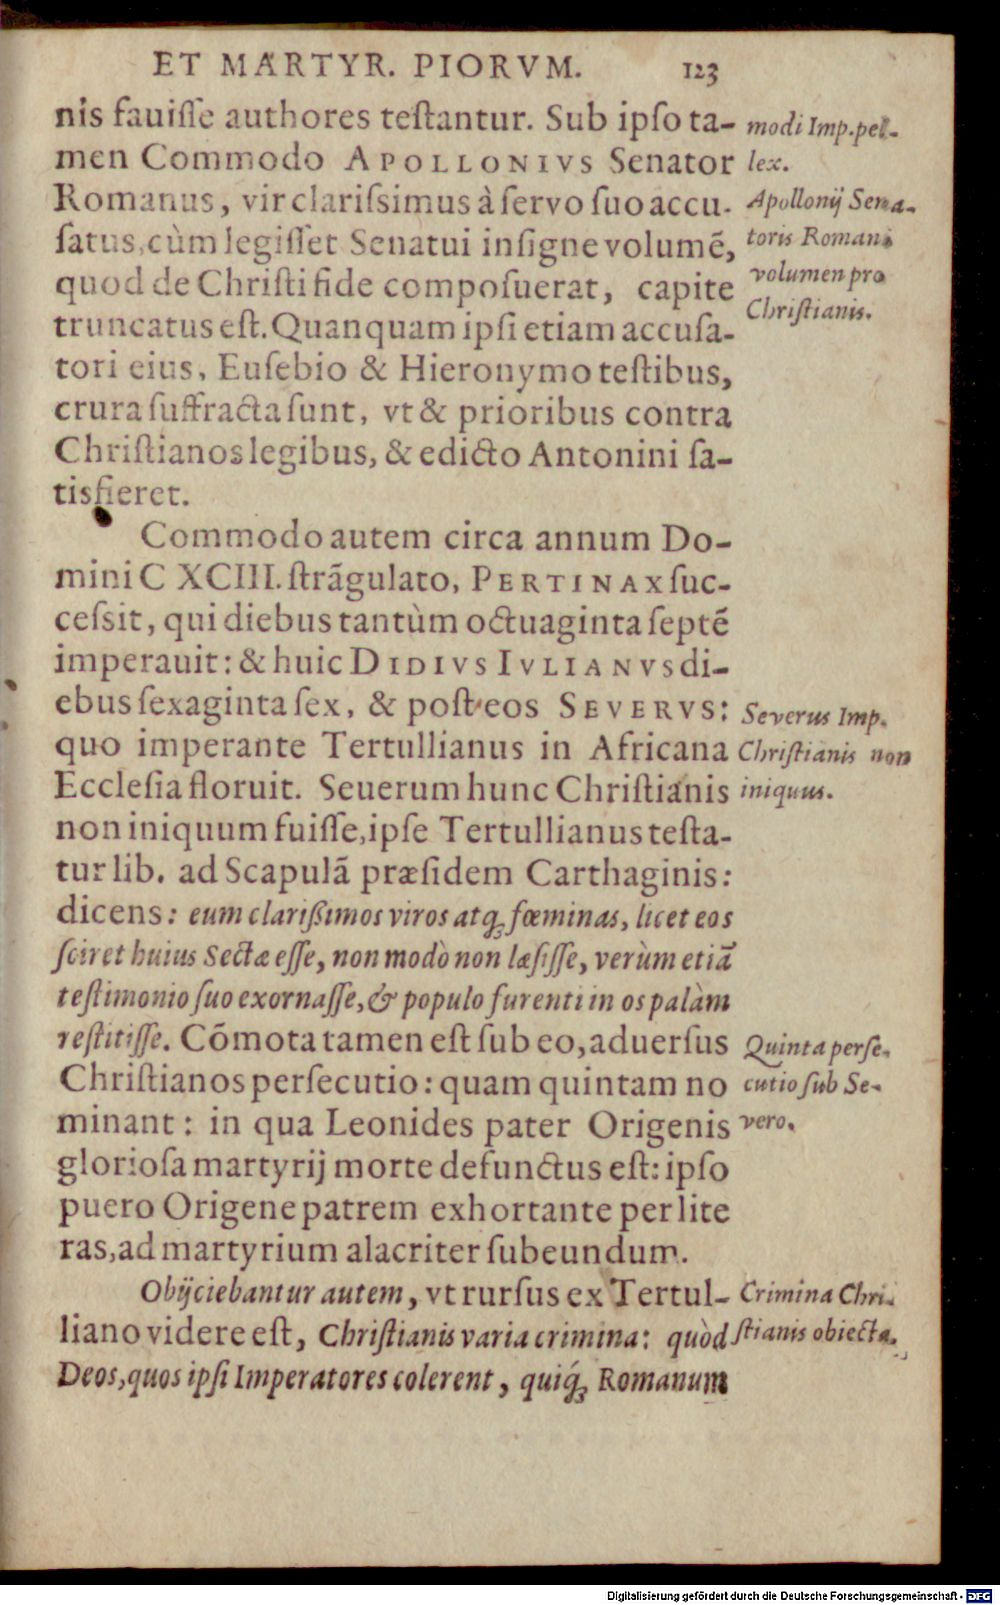 ET MARTYR. PIORVM. 123
nis fauiſſe authores teſtantur. Sub ipſo ta-
men Commodo APOLLONIVS Senator
Romanus, vir clariſsimus à ſervo ſuo accu-
ſatus, cùm legiſſet Senatui inſigne volumẽ,
quod de Chriſti fide compoſuerat, capite
truncatus eſt. Quanquam ipſi etiam accuſa-
tori eius, Euſebio & Hieronymo teſtibus,
crura ſuffracta ſunt, vt & prioribus contra
Chriſtianos legibus, & edicto Antonini ſa-
tisfieret.
Commodo autem circa annum Do-
mini C XCIII. ſtrãgulato, PERTINAX ſuc-
ceſsit, qui diebus tantùm octuaginta ſeptẽ
imperauit: & huic DIDIVS IVLIANVS di-
ebus ſexaginta ſex, & poſt eos SEVERVS:
quo imperante Tertullianus in Africana
Eccleſia floruit. Seuerum hunc Chriſtianis
non iniquum fuiſſe, ipſe Tertullianus teſta-
tur lib. ad Scapulã præſidem Carthaginis:
dicens: eum clariſsimos viros atq́; fœminas, licet eos
ſciret huius Sectæ eſſe, non modò non læſiſſe, verùm etiã
teſtimonio ſuo exornaſſe, & populo furenti in os palàm
reſtitiſſe. Cõmota tamen eſt ſub eo, aduerſus
Chriſtianos perſecutio: quam quintam no
minant: in qua Leonides pater Origenis
glorioſa martyrij morte defunctus eſt: ipſo
puero Origene patrem exhortante per lite
ras, ad martyrium alacriter ſubeundum.
Obijciebantur autem, vt rurſus ex Tertul-
liano videre eſt, Chriſtianis varia crimina: quòd
Deos, quos ipſi Imperatores colerent, quiq́; Romanum
modi Imp. pel-
lex.
Apollonij Sena-
toris Romani
volumen pro
Chriſtianis.
Severus Imp.
Chriſtianis non
iniquus.
Quinta perſe-
cutio ſub Se-
vero.
Crimina Chri-
ſtianis obiecta.
Digitalisierung gefördert durch die Deutsche Forschungsgemeinschaft - DFG